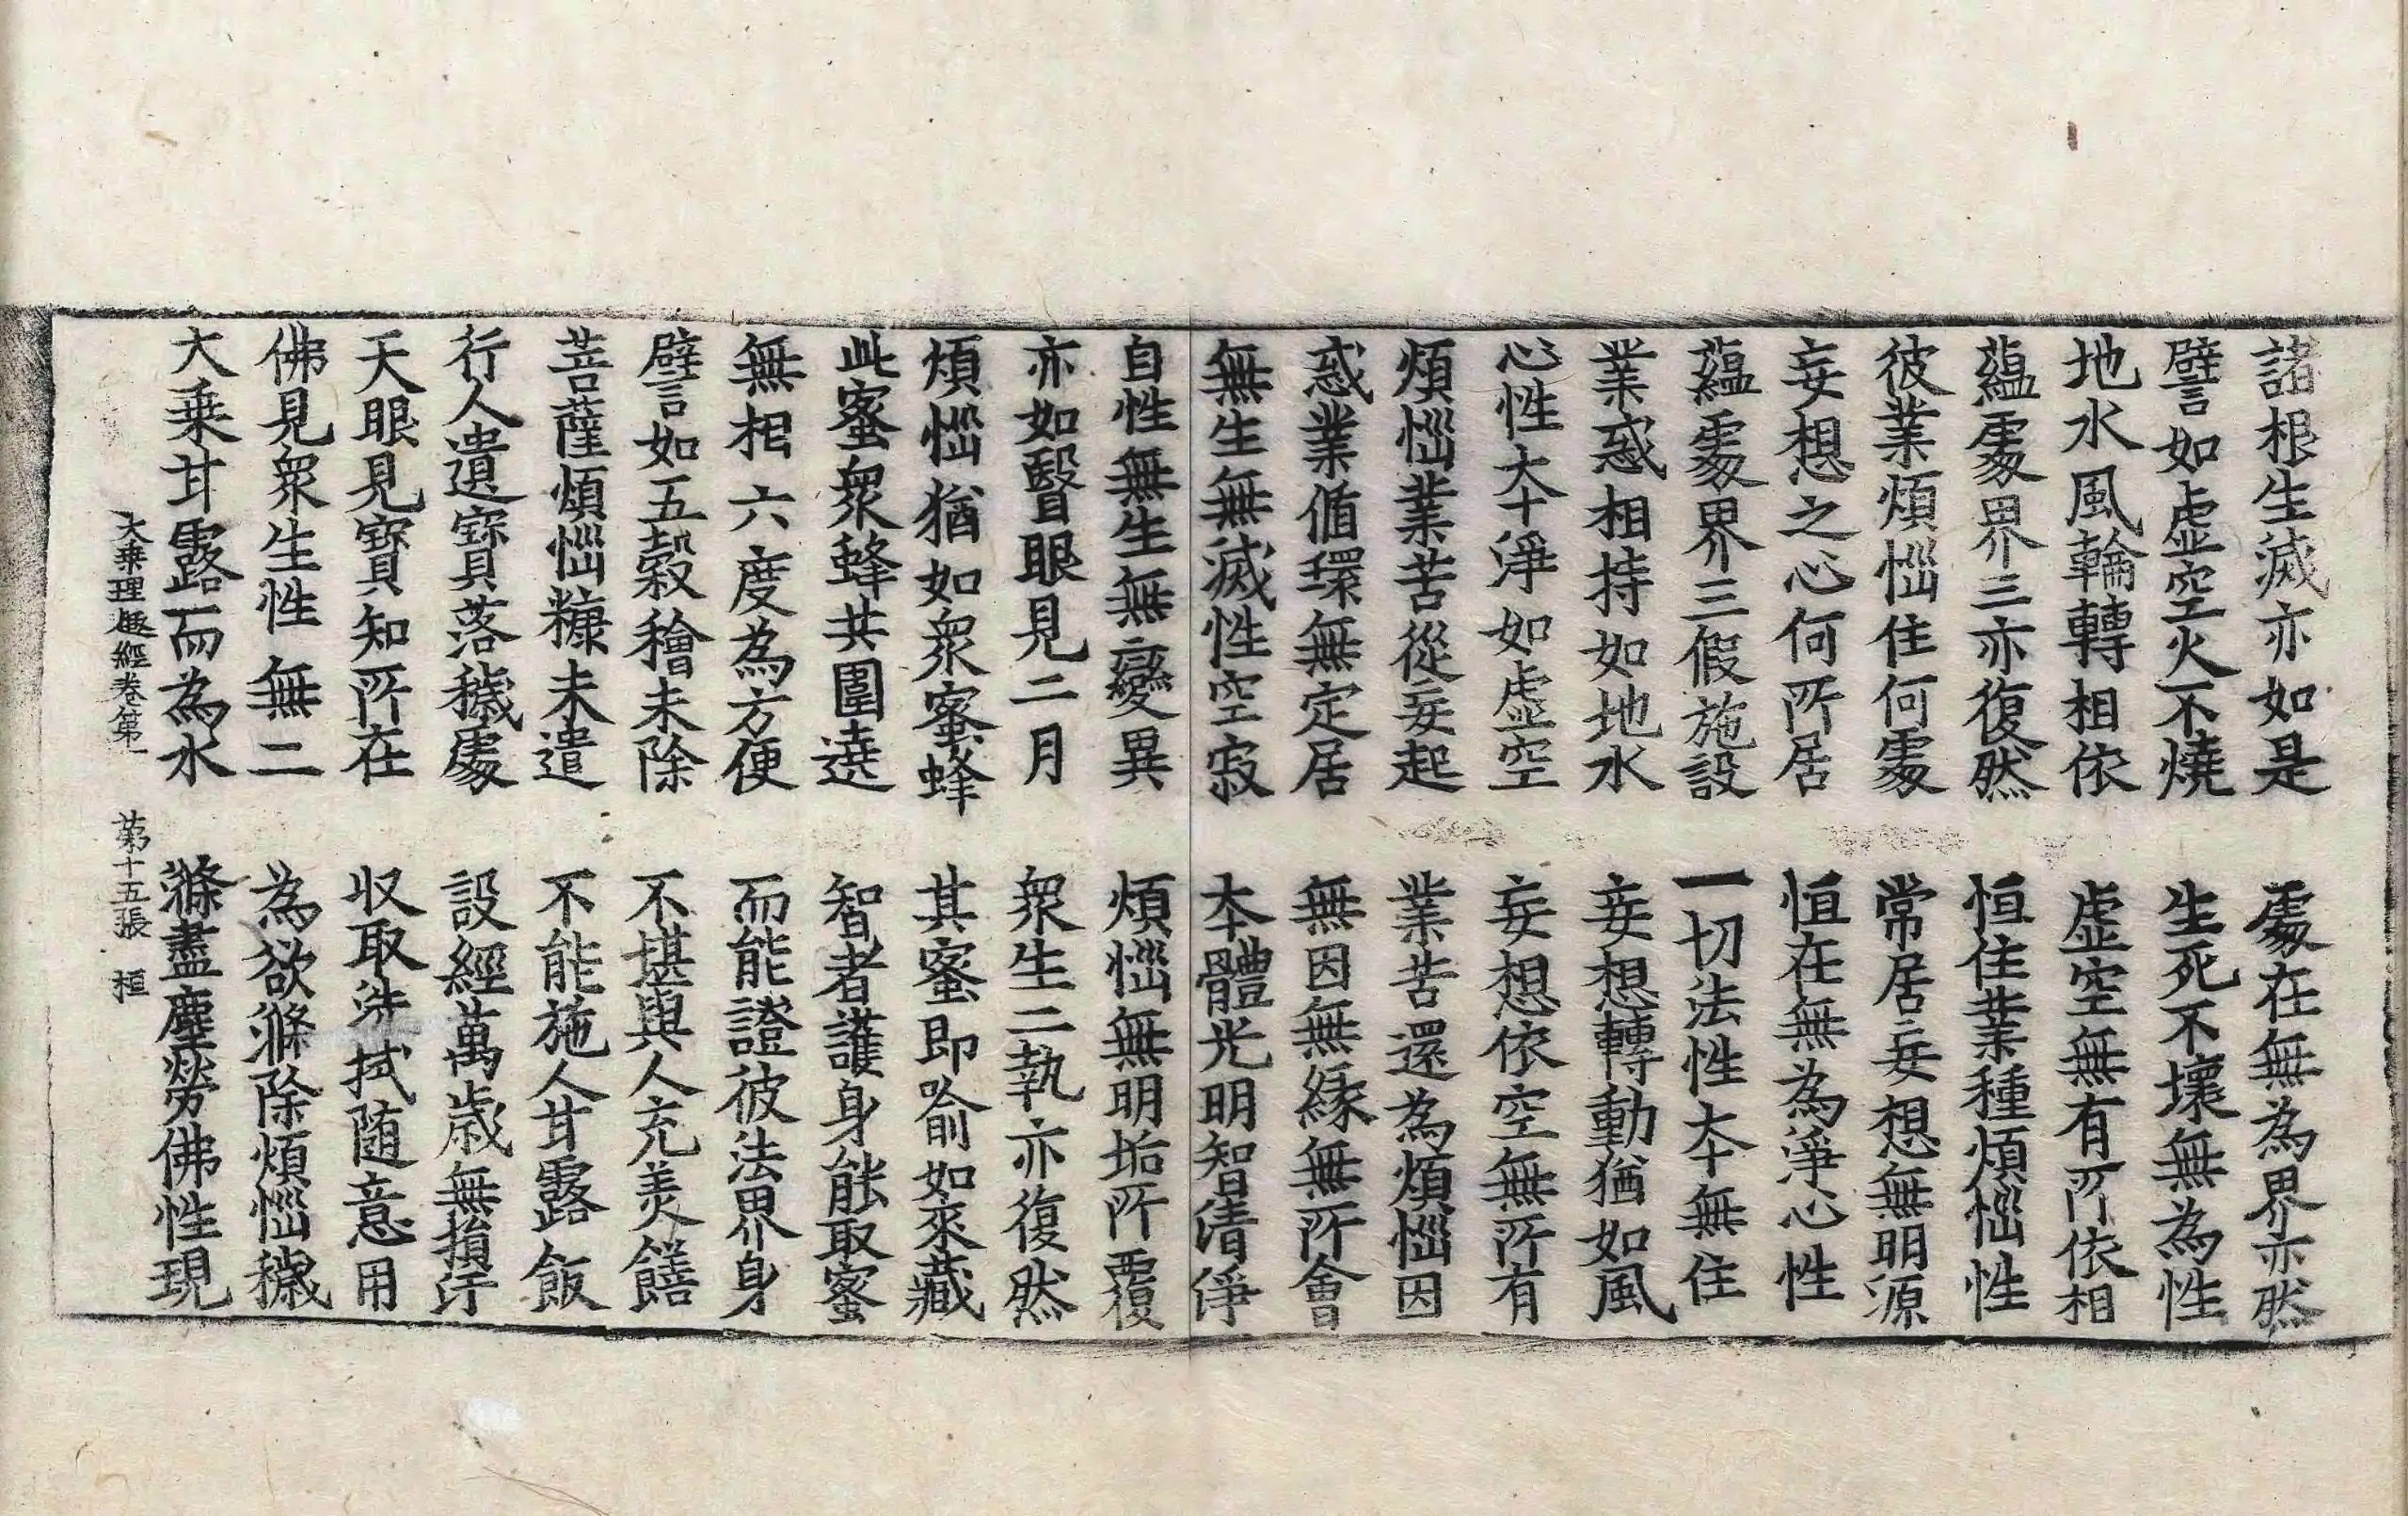 諸根生滅亦如是　處在無為界亦然
譬如虛空火不燒　生死不壞無為性
地水風輪轉相依　虛空無有所依相
蘊處界三亦復然　恒住業種煩惱性
彼業煩惱住何處　常居妄想無明源
妄想之心何所居　恒在無為淨心性
蘊處界三假施設　一切法性本無住
業惑相持如地水　妄想轉動猶如風
心性本淨如虛空　妄想依空無所有
煩惱業苦從妄起　業苦還為煩惱因
惑業循環無定居　無因無緣無所會
無生無滅性空寂　本體光明智清淨
自性無生無變異　煩惱無明垢所覆
亦如翳眼見二月　衆生二執亦復然
煩惱猶如衆蜜蜂　其蜜即喻如來藏
此蜜衆蜂共圍遶　智者護身能取蜜
無相六度為方便　而能證彼法界身
譬如五穀穭未除　不堪與人充美饍
菩薩煩惱糠未遣　不能施人甘露飯
行人遺寶落穢處　設經萬歲無損汙
天眼見寶知所在　収取洗拭随意用
佛見衆生性無二　為欲滌除煩惱穢
大乗甘露而為水　滌盡塵勞佛性現
大乗理趣經卷第一　第十五張